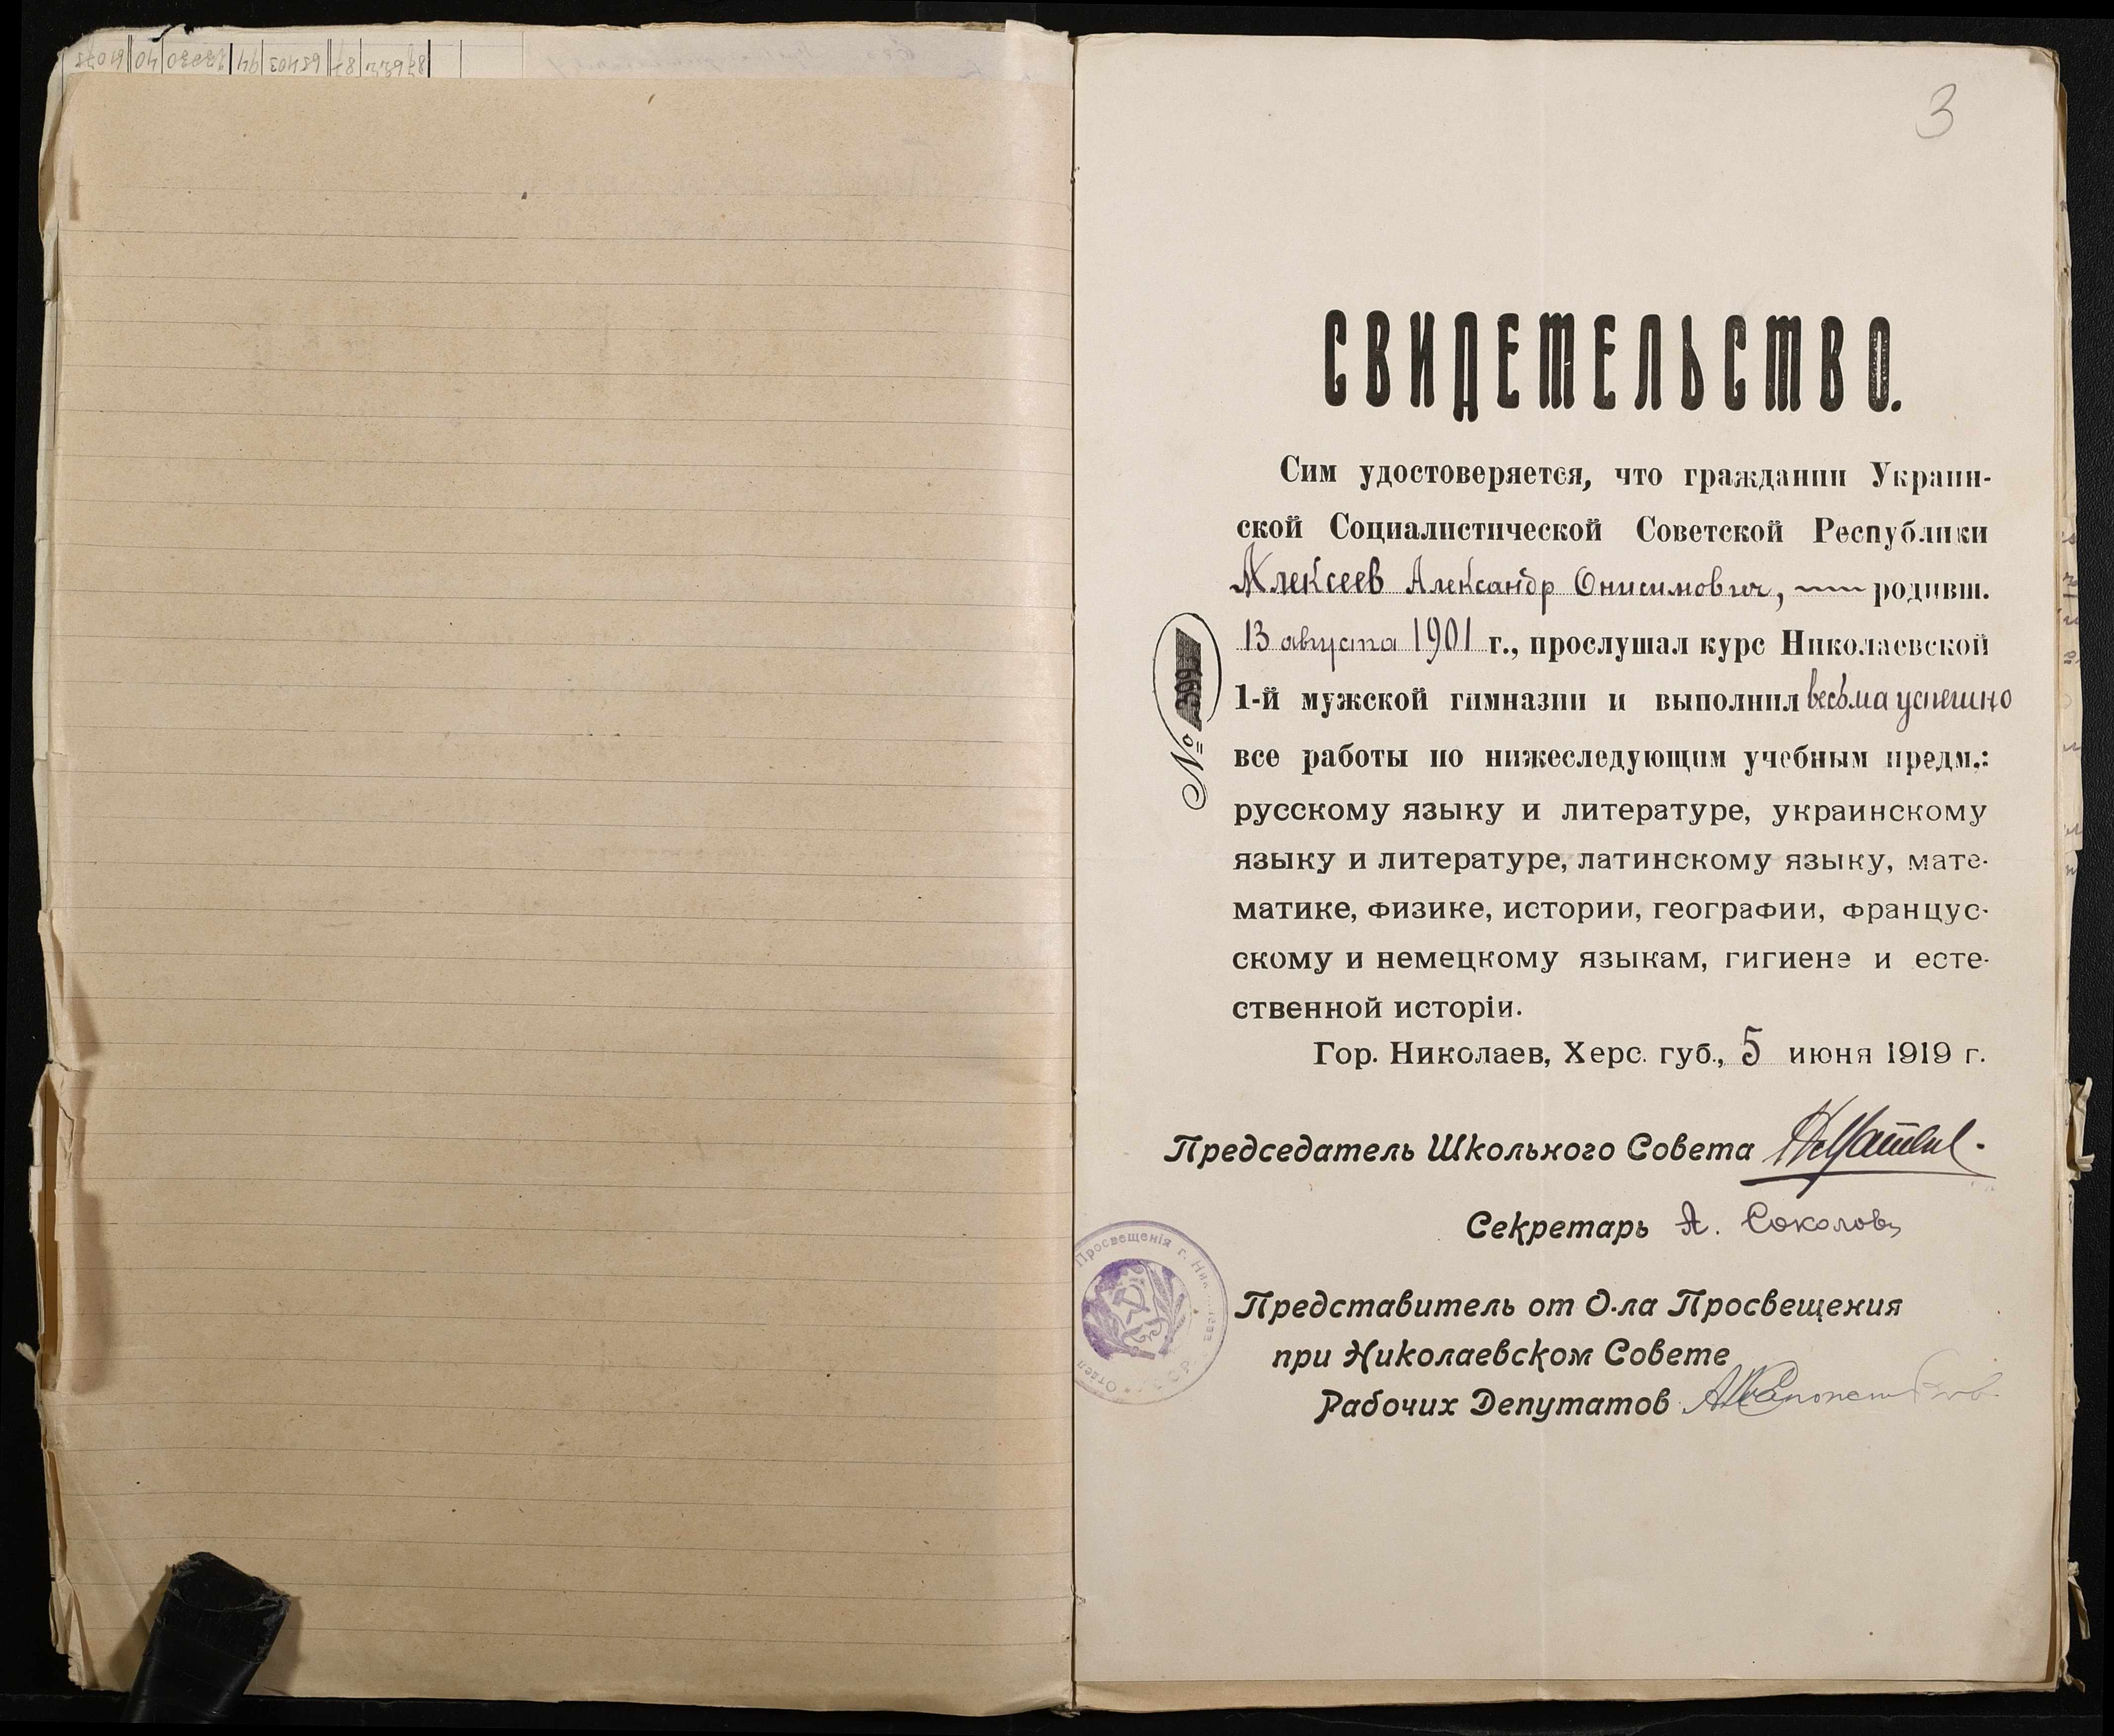 3
СВИДЕТЕЛЬСТВО.
Сим удостоверяется, что гражданин Украин-
ской Социалистической Советской Республики
Алексеев Александр Онисимович, родивш.
13 августа 1901 г., прослушал курс Николаевской
1-й мужской гимназии и выполнил весьма успешно
все работы по нижеследующим учебным предм.:
русскому языку и литературе, украинскому
языку и литературе, латинскому языку, мате-
матике, физике, истории, географии, француc-
скому и немецкому языкам, гигиене и есте-
ственной исторіи.
Гор. Николаев, Херс. губ., 5 июня 1919 г.
№
Председатель Школьного Совета
Секретарь А. Соколовъ
Представитель от О-ла Просвещения
при Николаевском Совете
Рабочих Депутатов
Отдел Просвещенія г.